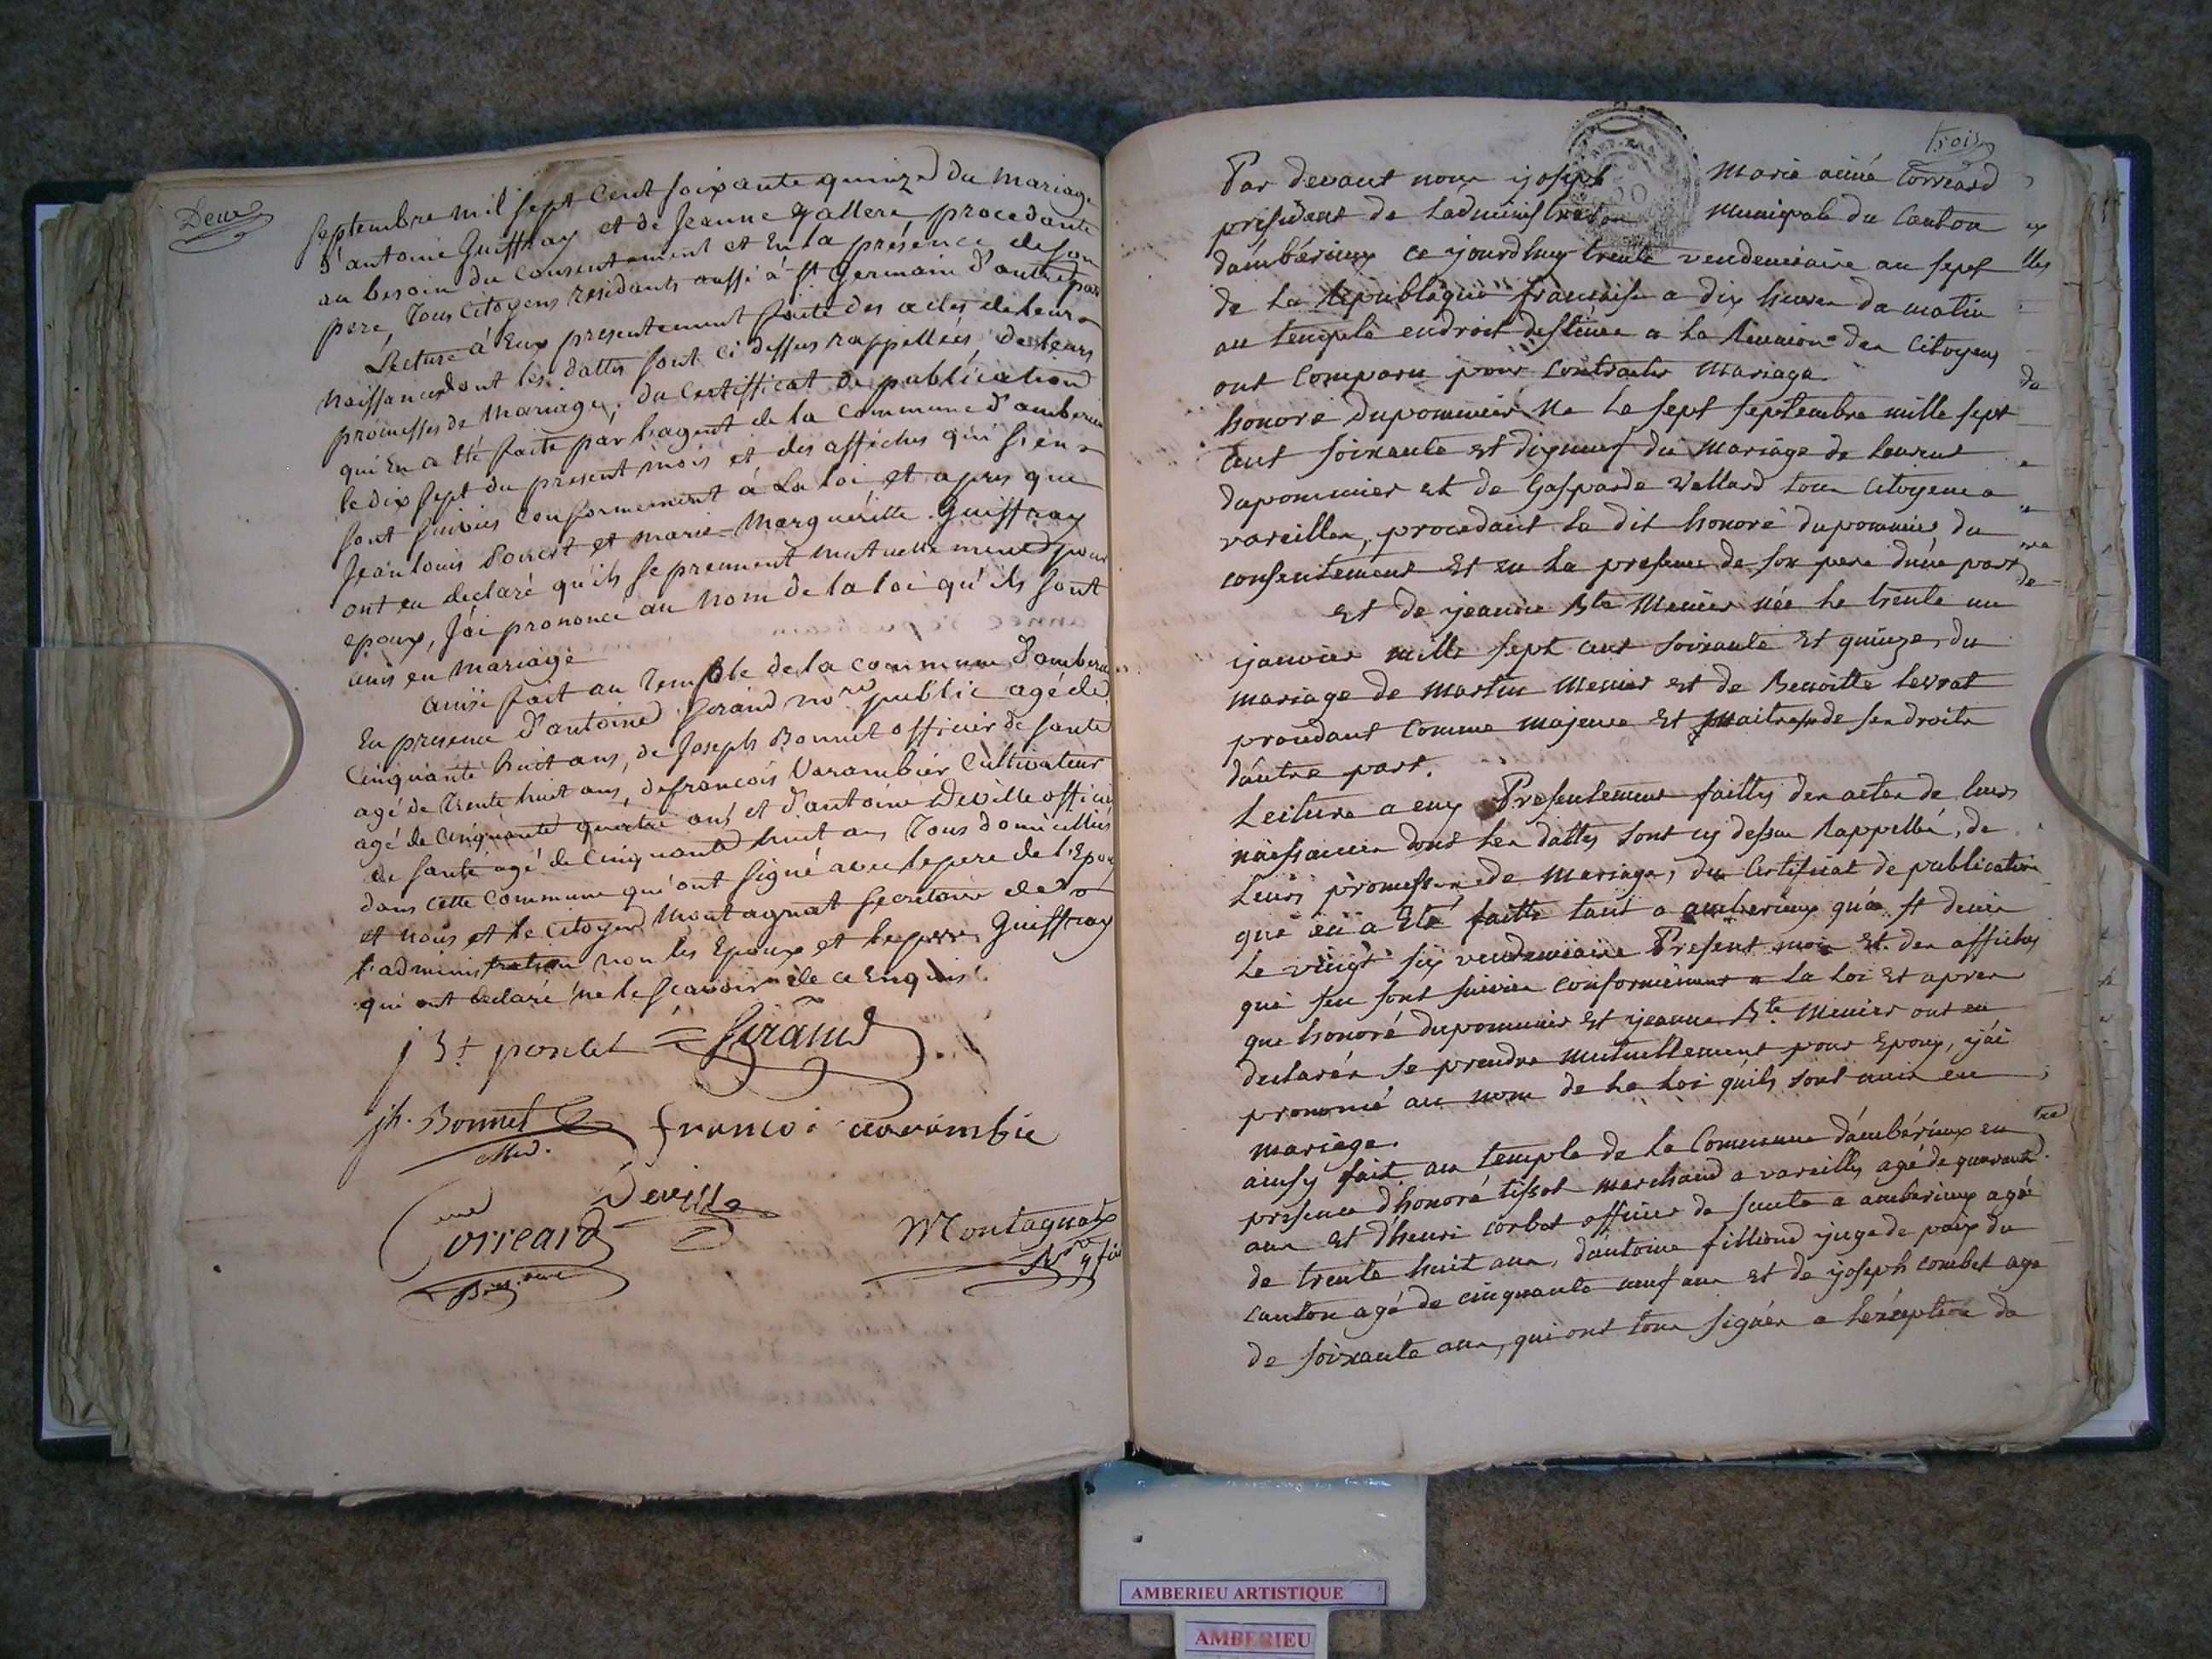 Deux
septembre mil sept Cent soixante quinze du mariage
d'antoine Guiffray et de Jeanne gallere, procedante
au besoin du Consentement et En la présence de son
pere, Tous Citoyens residants aussi à St Germain d'autre part
Lecture à Eux presentement faite des actes de leurs
Naissances dont les dattes sont ci dessus rappellées de leurs
promesses de mariage, du Certifficat de publication
qui En a été faite par l'agent de la Commune d'amberieu
le dix sept du present mois et des affiches qui s'en
sont suivies conformement à La loi et apres que
Jean louis Poncet et marie-Marguéritte Guiffray
ont eu declaré qu'ils se prennent mutuellement pour
epoux, J'ai prononcé au nom de la loi qu'ils sont
unis en mariage
ainsi fait au Temple de la commune d'amberieu
En presence d'antoine Sirand nore public agé de
Cinquante huit ans, de Joseph Bonnet officier de santé
agé de Trente huit ans, de francois Varambier Cultivateur
agé de Cinquante quatre ans et d'antoine Deville officier
de santé agé de Cinquante huit ans Tous domicilliés
dans cette Commune qui ont signé avec le pere de l'Epoux
et nous et le Citoyen Montagnat secretaire de
l'administration non les Epoux et le pere Guiffray
qui ont declaré ne le scavoir de ce Enquis
j Bt poncet Sirand
jh. Bonnet francoi varambie
Med.
Deville
Correard Montagnat
trois
Par devant nous joseph marie aimé Corréard
président de Ladministration Municipale du Canton
dambérieux ce jourdhuy trente vendemiaire an sept
de La Republique francaise a dix heures du matin
au temple endroit destinée a La Reunion des Citoyens
ont Comparu pour Contracter Mariage
honoré dupommier Ne Le sept septembre mille sept
cent soixante et dixneuf du Mariage de Laurent
dupommier et de Gasparde Vallard tous Citoyens a
vareilles, procedant Le dit honoré dupommier du
consentement Et en La presence de son pere dune part
Et de jeanne Bte Menier née Le trente un
janvier mille sept cent soixante Et quinze, du
mariage de Martin Menier Et de Benoitte Levrat
procedant Comme majeure Et Maitresse de ses droits
dautre part.
Lecture a eux Presentement faittes des actes de leurs
naissances dont les dattes sont cy dessus Rappellée, de
Leurs promesses de Mariage, du Certificat de publication
qui en a Eté faitte tant a amberieux qu'a st denis
Le vingt six vendemiaire Present mois Et des affiches
qui sen sont suivies conformement a La loi Et apres
que honoré dupommier Et jeanne Bte Menier ont eu
declarés se prendre mutuellement pour Epoux, j'ai
prononcé au nom de La Loi quils sont unis en
mariage.
ainsy fait au temple de La Commune dambérieux en
presence dhonoré tissot marchand a vareilles agé de quarante
ans Et dhenri corbet officier de sante a amberieux agé
de trente huit ans, dantoine filliond juge de paix du
canton agé de cinquante neuf ans Et de joseph combet age
de soixante ans, qui ont tous signés a L'exception de
AMBERIEU ARTISTIQUE
AMBERIEU